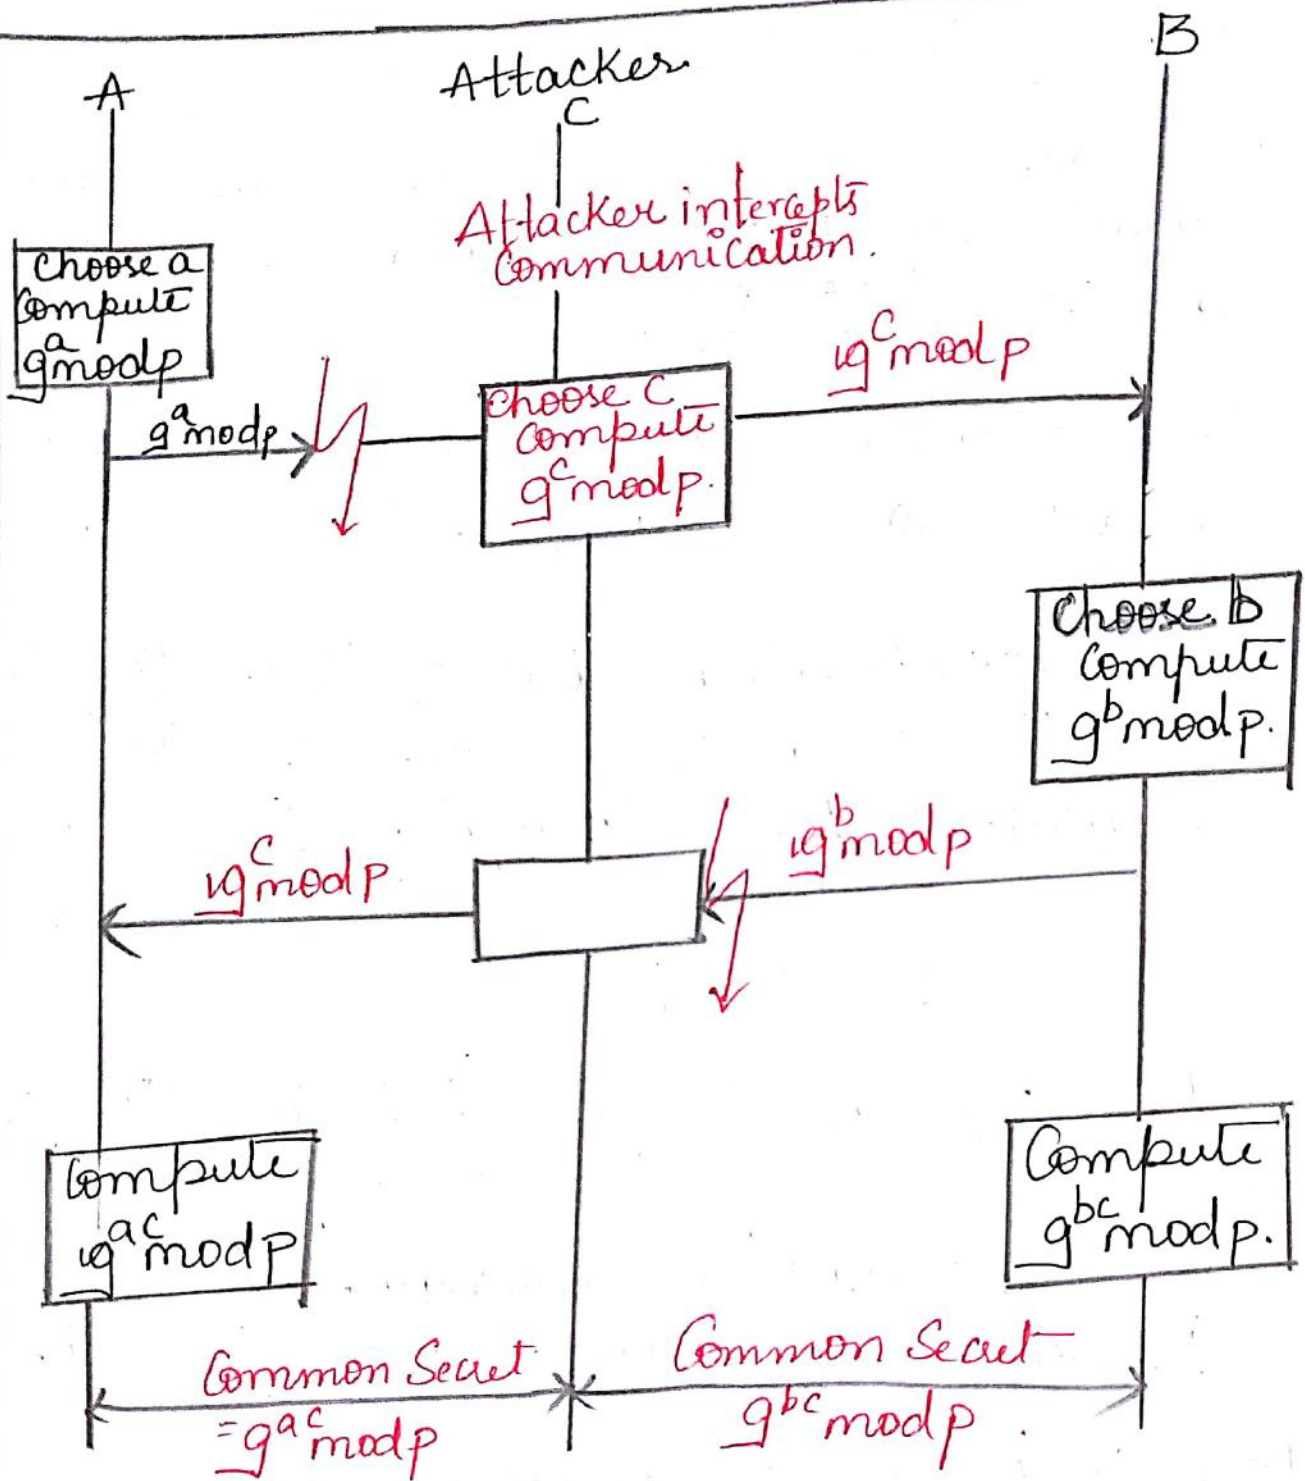 A
Attacker
C
B
Attacker intercepts
Communication.
Choose a
Compute
g^a mod p
g^a mod p
Choose C
Compute
g^c mod p.
g^c mod p
Choose b
Compute
g^b mod p.
g^c mod p
g^b mod p
Compute
g^ac mod p
Compute
g^bc mod p.
Common Secret
= g^ac mod p
Common Secret
g^bc mod p.